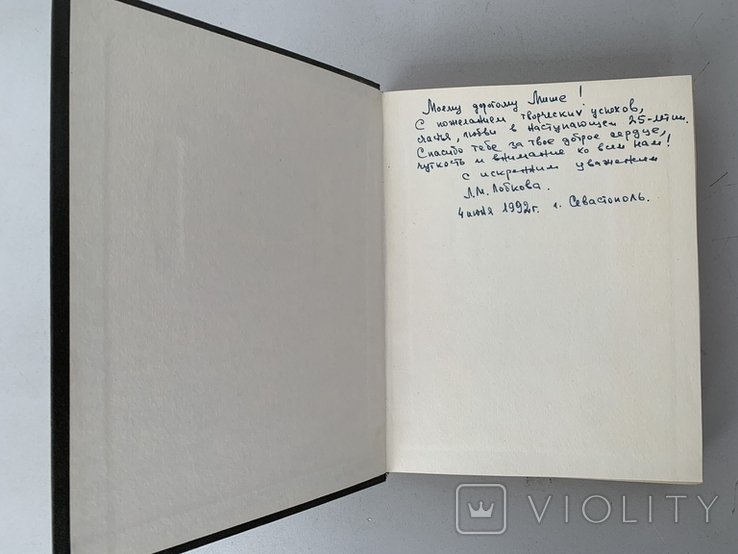 Моему дорогому Мише!
С пожеланием творческих успехов,
счастья, любви в наступающем 25-летии.
Спасибо тебе за твое доброе сердце,
чуткость и внимание ко всем нам!
с искренним уважением
Л.М. Лобкова.
4 июня 1992г. г. Севастополь.
VIOLITY